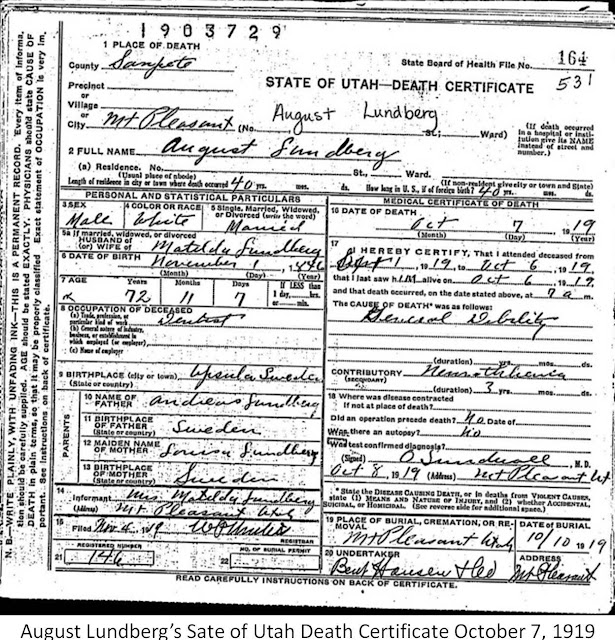 1903729
1 PLACE OF DEATH
County Sanpete
State Board of Health File No. 164
531
Precinct
or
Village
or
City Mt Pleasant (No.
STATE OF UTAH—DEATH CERTIFICATE
August Lundberg
St.; Ward)
(If death occurred in a hospital or institution give its NAME instead of street and number.)
2 FULL NAME August Lundberg
(a) Residence. No. St., Ward.
(Usual place of abode)
(If non-resident give city or town and State)
Length of residence in city or town where death occurred 40 yrs. mos. ds. How long in U. S., if of foreign birth? 40 yrs. mos. ds.
PERSONAL AND STATISTICAL PARTICULARS
3 SEX
Male
4 COLOR OR RACE
White
5 Single, Married, Widowed, or Divorced (write the word)
Married
5a If married, widowed, or divorced
HUSBAND of
(or) WIFE of Matilda Lundberg
6 DATE OF BIRTH November
(Month) (Day) (Year)
7 AGE Years Months Days If LESS than
1 day, hrs.
or min.
72 11 7
8 OCCUPATION OF DECEASED
(a) Trade, profession, or particular kind of work Dentist
(b) General nature of industry, business, or establishment in which employed (or employer)
(c) Name of employer
9 BIRTHPLACE (city or town) Upsula Sweden
(State or country)
PARENTS
10 NAME OF FATHER Andreas Lundberg
11 BIRTHPLACE OF FATHER Sweden
(State or country)
12 MAIDEN NAME OF MOTHER Louisa Lundberg
13 BIRTHPLACE OF MOTHER Sweden
(State or country)
14
Informant Mrs Matilda Lundberg
(Address) Mt Pleasant Utah
15
Filed Nov 4 19
REGISTRAR
21 REGISTERED NUMBER
146
22 NO. OF BURIAL PERMIT
MEDICAL CERTIFICATE OF DEATH
16 DATE OF DEATH
Oct 7 1919
(Month) (Day) (Year)
17
I HEREBY CERTIFY, That I attended deceased from
Sept 1 1919, to Oct 6, 1919,
that I last saw him alive on Oct 6 1919
and that death occurred, on the date stated above, at 7 a m.
The CAUSE OF DEATH* was as follows:
General Debility
(duration) yrs. mos. ds.
CONTRIBUTORY
(SECONDARY)
(duration) 3 yrs. mos. ds.
18 Where was disease contracted
if not at place of death?
Did an operation precede death? No Date of
Was there an autopsy? No
What test confirmed diagnosis?
(Signed) O Sundwall M. D.
Oct 8 1919 (Address) Mt Pleasant Ut
* State the DISEASE CAUSING DEATH, or in deaths from VIOLENT CAUSES, state (1) MEANS AND NATURE OF INJURY, and (2) whether ACCIDENTAL, SUICIDAL, or HOMICIDAL. (See reverse side for additional space.)
19 PLACE OF BURIAL, CREMATION, OR REMOVAL
Mt Pleasant Utah
DATE OF BURIAL
10/10 1919
20 UNDERTAKER
Bent Hansen
ADDRESS
Mt Pleasant
READ CAREFULLY INSTRUCTIONS ON BACK OF CERTIFICATE.
N. B.—WRITE PLAINLY, WITH UNFADING INK—THIS IS A PERMANENT RECORD. Every item of information should be carefully supplied. AGE should be stated EXACTLY. PHYSICIANS should state CAUSE OF DEATH in plain terms, so that it may be properly classified. Exact statement of OCCUPATION is very important. See instructions on back of certificate.
August Lundberg's Sate of Utah Death Certificate October 7, 1919